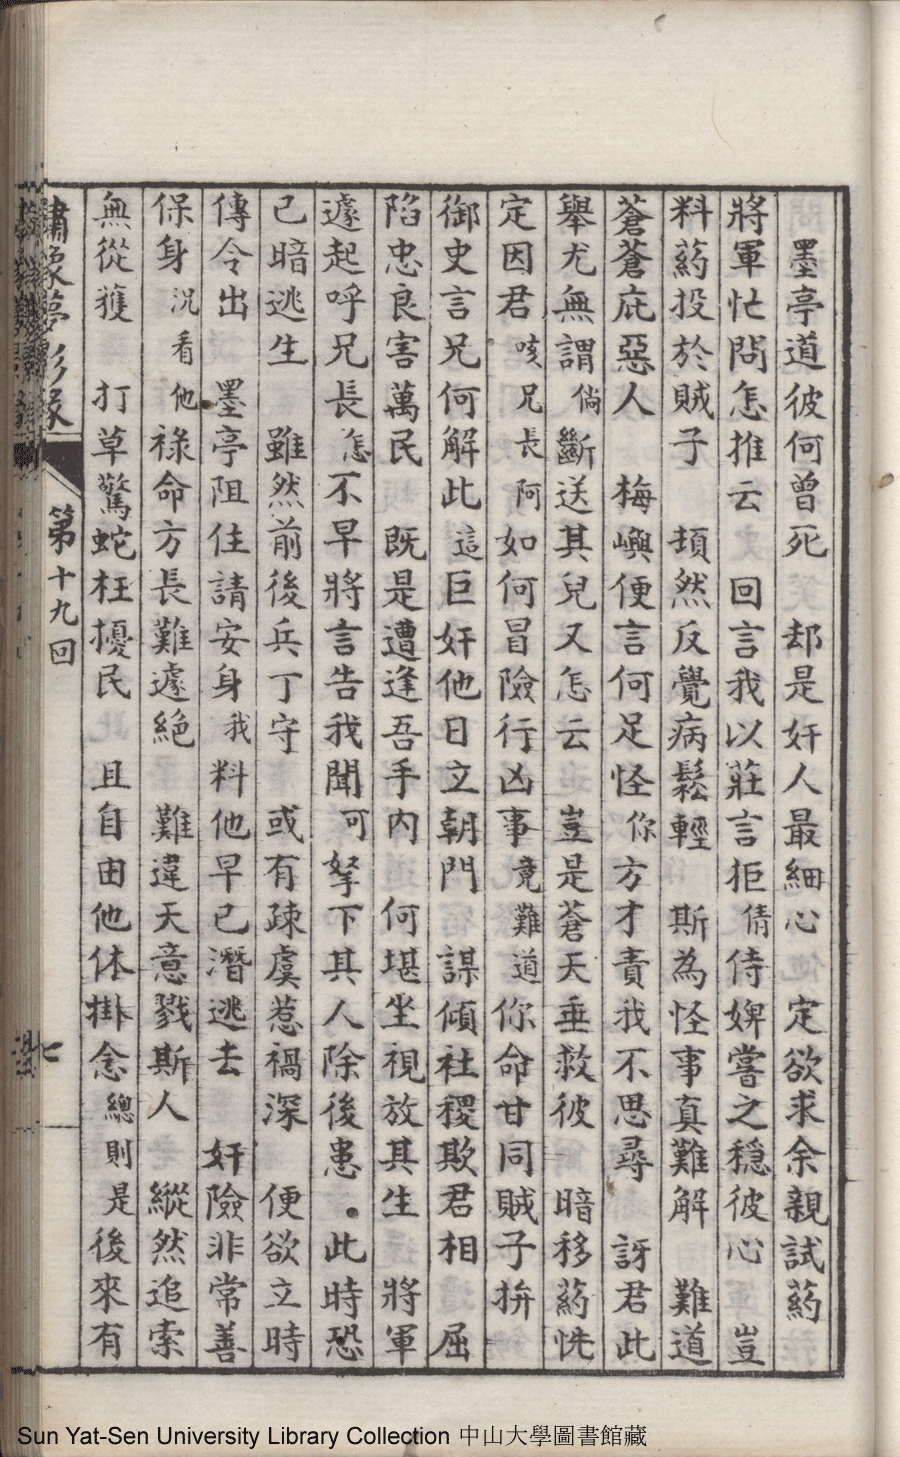 墨亭道彼何曾死　却是奸人最細心　定欲求余親試葯
將軍忙問怎推云　回言我以莊言拒倩侍婢嘗之穏彼心　豈
料葯投於賊子　頓然反覺病鬆輕　斯為怪事真難解　難道
蒼蒼庇惡人　梅嶼便言何足怪你方才責我不思尋　訝君此
舉尤無謂倘斷送其兒又怎云　豈是蒼天垂救彼　暗移葯恍
定因君咳兄長阿如何冒險行凶事竟難道你命甘同賊子拚
御史言兄何解此這巨奸他日立朝門　謀傾社稷欺君相　屈
陷忠良害萬民　既是遭逢吾手內　何堪坐視放其生　將軍
遽起呼兄長怎不早將言告我聞可拏下其人除後患　此時恐
已暗逃生　雖然前後兵丁守　或有疎虞惹禍深　便欲立時
傳令出　墨亭阻住請安身我料他早已潛逃去　奸險非常善
保身況看他祿命方長難遽絕　難違天意戮斯人　縱然追索
無從獲　打草驚蛇枉擾民　且自由他休掛念總則是後來有
繡像夢影緣　第十九回　七
Sun Yat-Sen University Library Collection 中山大學圖書館藏